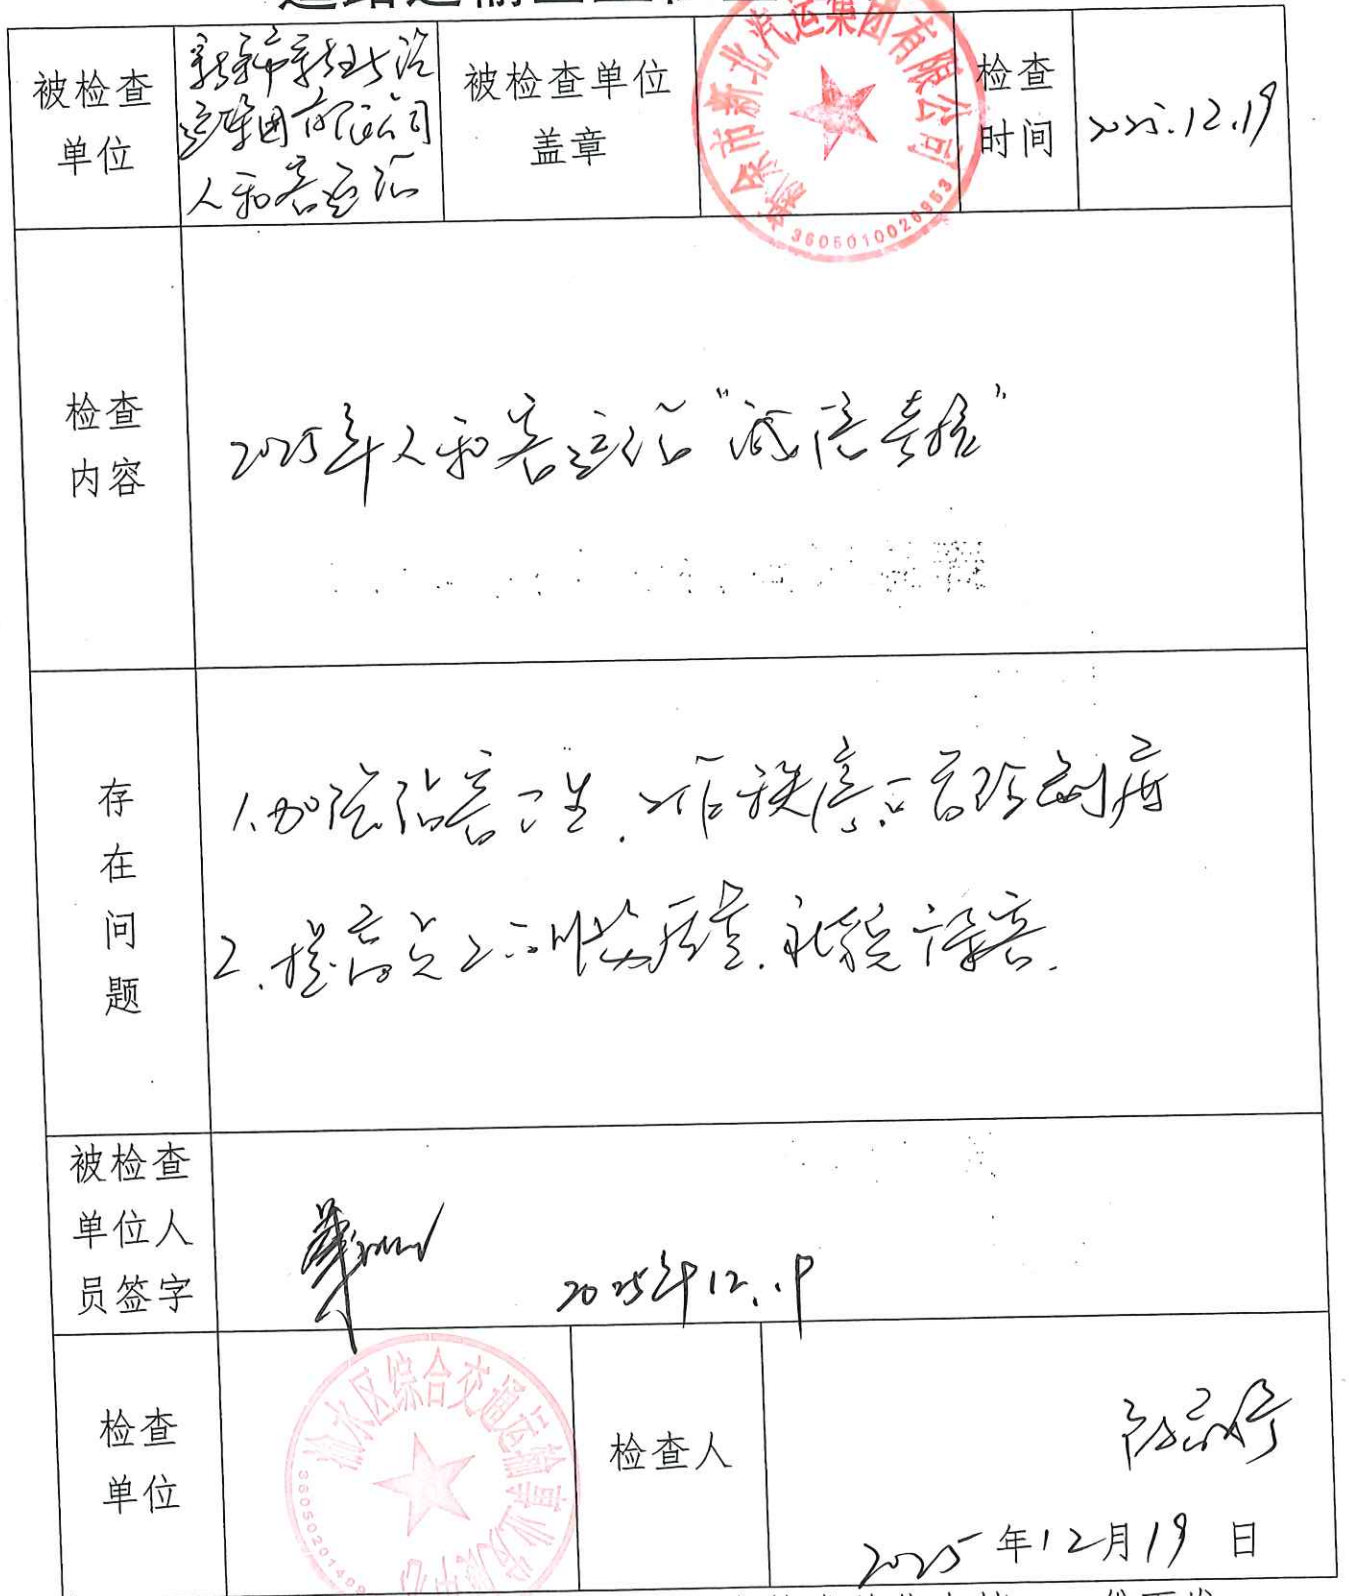 被检查
单位
新余市新北汽
运集团有限公司
人和客运站
被检查单位
盖章
新余市新北汽运集团有限公司
3605010020963
检查
时间
2025.12.19
检查
内容
2025年人和客运站“诚信考核”
存
在
问
题
1.加强站容卫生、工作秩序
制度
2.提高员工
质量.
被检查
单位人
员签字
2025年12.19
检查
单位
渝水区综合交通运输事业发展中心
检查人
2025年12月19日